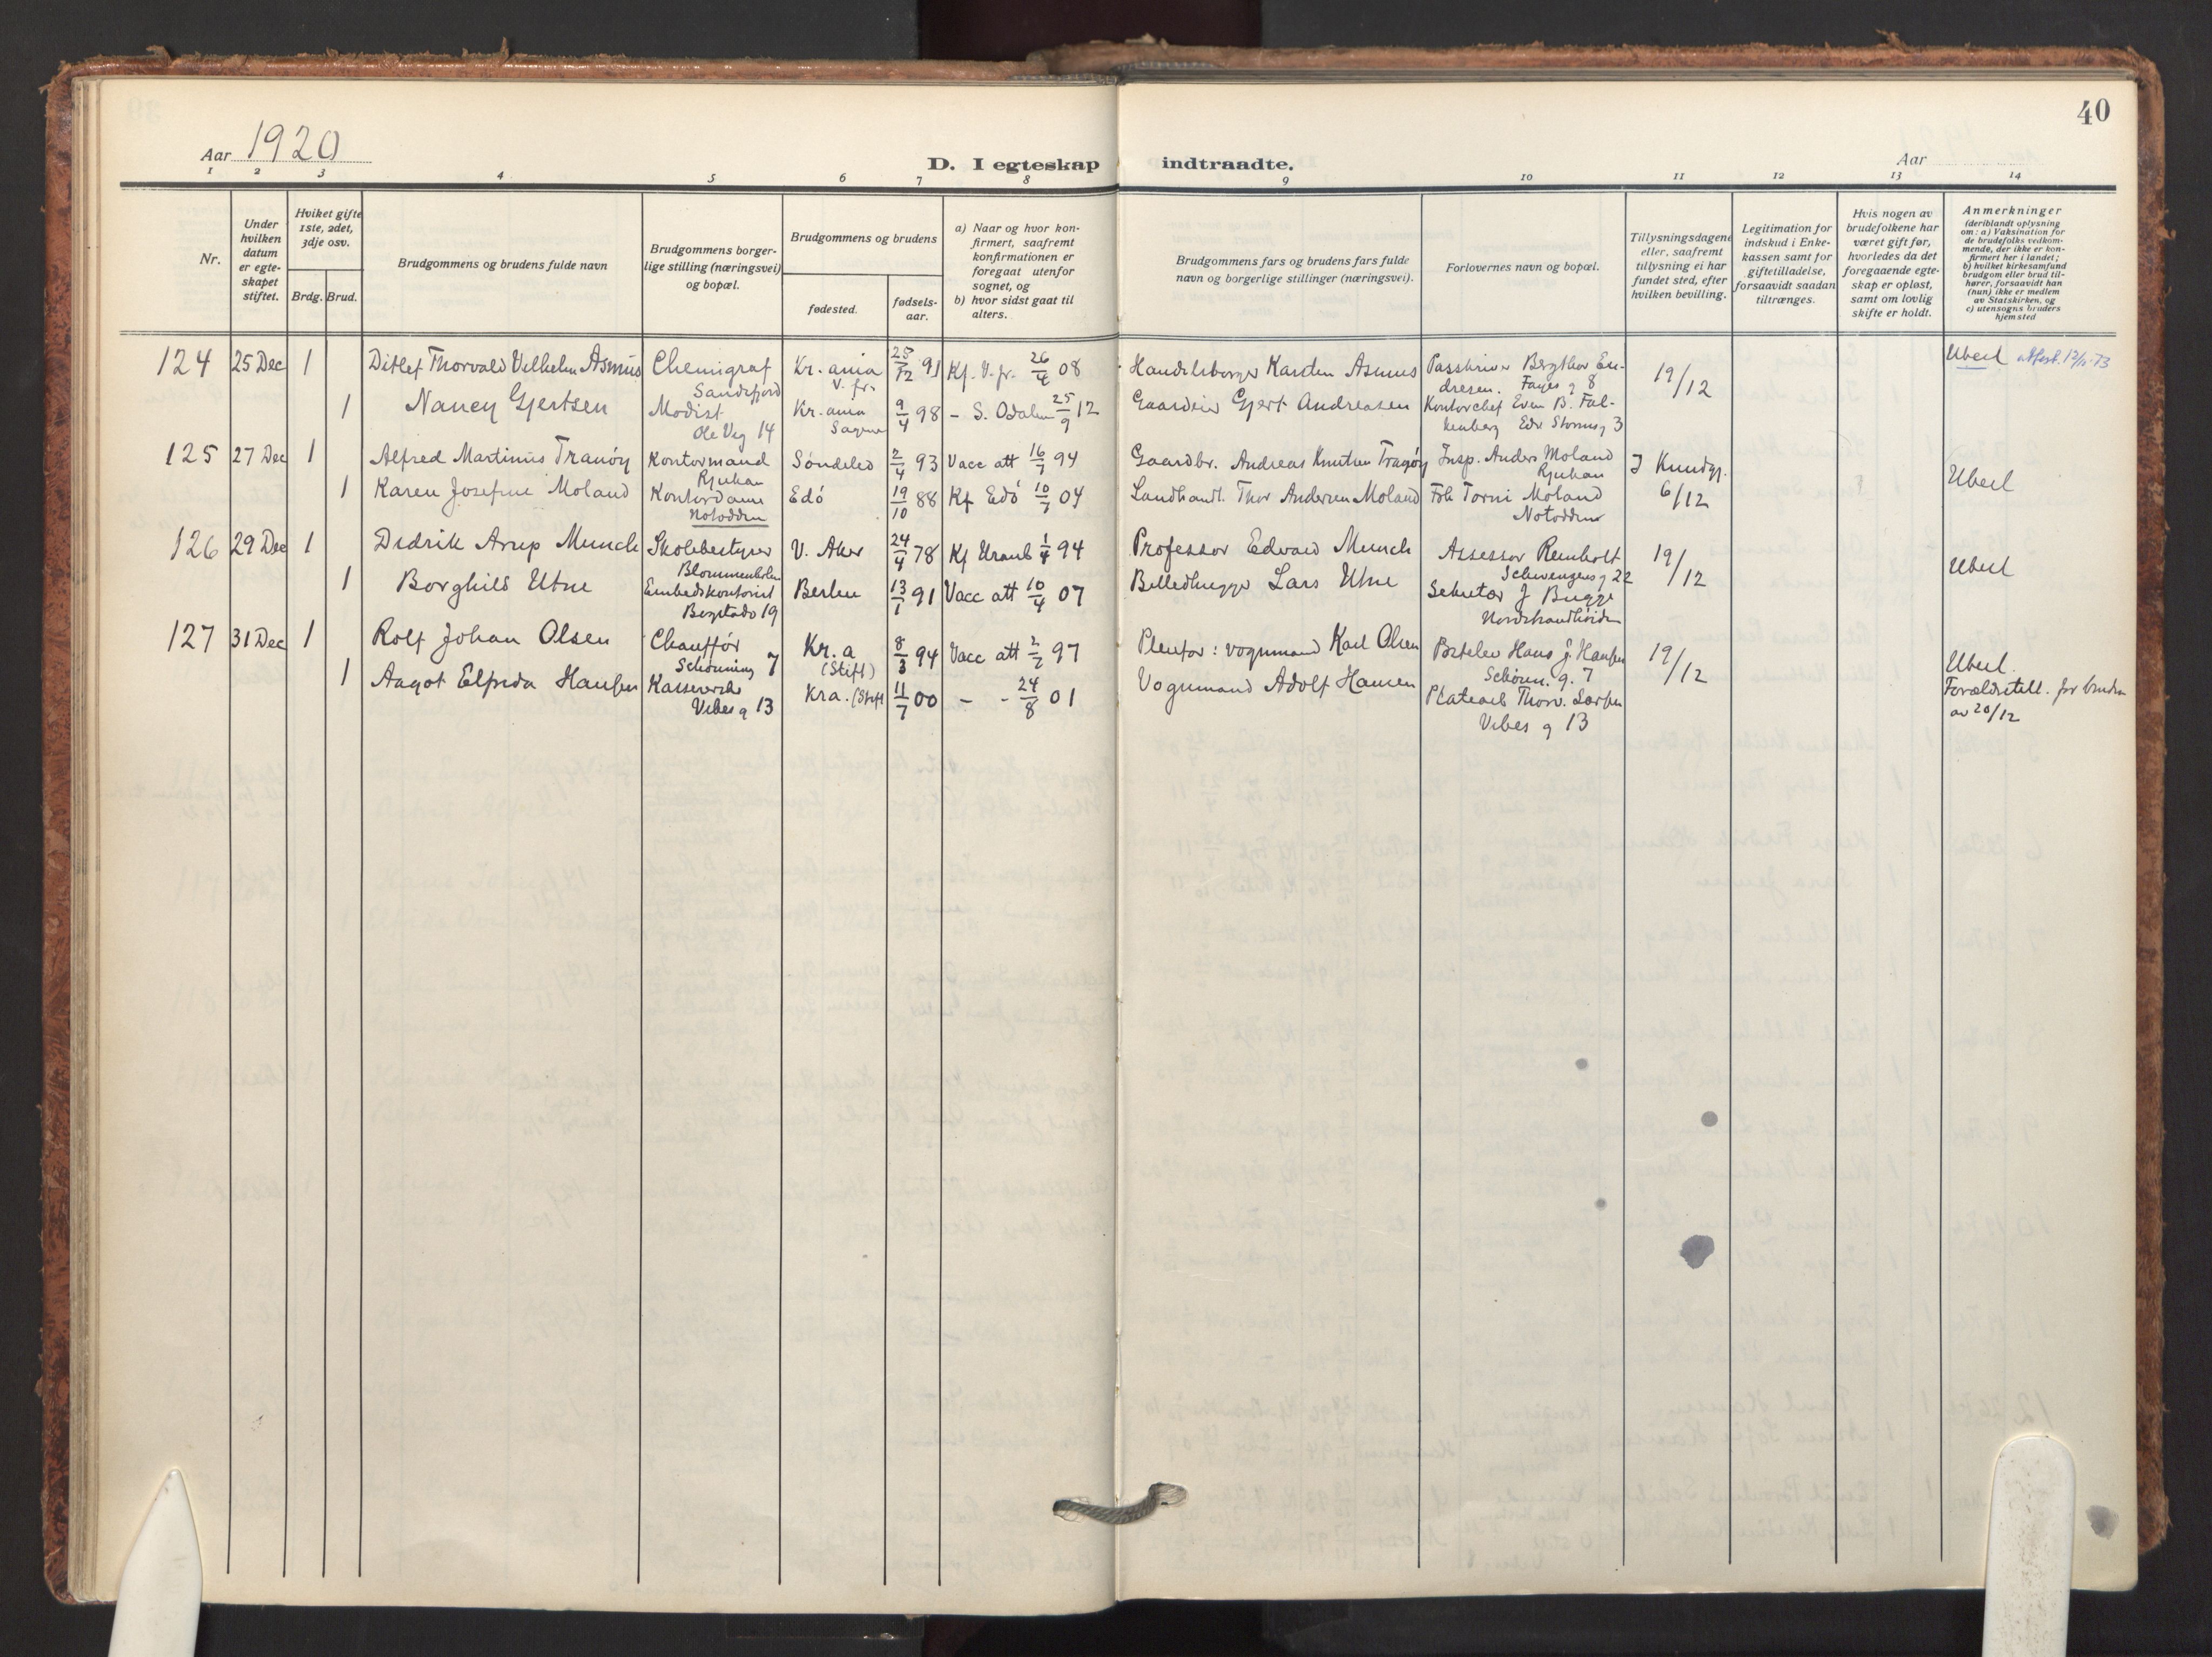 40
Aar 1920
D. I egteskap indtraadte.
Aar
1 2 3 4 5 6 7 8 9 10 11 12 13 14
Nr.
Under
hvilken
datum
er egte-
skapet
stiftet.
Hvilket gifte
1ste, 2det,
3dje osv.
Brdg. Brud.
Brudgommens og brudens fulde navn
Brudgommens borger-
lige stilling (næringsvei)
og bopæl.
Brudgommens og brudens
fødested.
fødsels-
aar.
a) Naar og hvor kon-
firmert, saafremt
konfirmationen er
foregaat utenfor
sognet, og
b) hvor sidst gaat til
alters.
Brudgommens fars og brudens fars fulde
navn og borgerlige stillinger (næringsvei).
Forlovernes navn og bopæl.
Tillysningsdagene
eller, saafremt
tillysning ei har
fundet sted, efter
hvilken bevilling.
Legitimation for
indskud i Enke-
kassen samt for
giftetilladelse,
forsaavidt saadan
tiltrænges.
Hvis nogen av
brudefolkene har
været gift før,
hvorledes da det
foregaaende egte-
skap er opløst,
samt om lovlig
skifte er holdt.
Anmerkninger
(deriblandt oplysning
om: a) Vaksination for
de brudefolks vedkom-
mende, der ikke er kon-
firmert her i landet;
b) hvilket kirkesamfund
brudgom eller brud til-
hører, forsaavidt han
(hun) ikke er medlem
av Statskirken, og
c) utensogns bruders
hjemsted
124 25 Dec 1 Ditlef Thorvald Vilhelm Asmus Chemigraf Kr. ania 25/12 91 Kf. V. fr. 26/4 08 Handelsborger Karsten Asmus Passkriver Bergthor En- 19/12 Uberl attest 12/11-73
Sandefjord V. fr. dresen. Fayes g 8
1 Nancy Gjertsen Modist Kr. ania 9/4 98 - S. Odalen 25/9 12 Gaardeier Gjert Andreasen Kontorchef Even B. Fal-
Ole Vig 14 Sagene kenberg Edv. Storms g 3
125 27 Dec 1 Alfred Martinus Tranöy Kontormand Söndeled 2/4 93 Vacc att 16/7 94 Gaardbr. Andreas Knutsen Tragöy Insp. Anders Moland J Kundgj.
Rjukan Rjukan Uberl
1 Karen Josefine Moland Kontordame Edö 19/10 88 Kf Edö 10/7 04 Landhandl. Thor Andersen Moland Frk Torni Moland 6/12
Notodden Notodden
126 29 Dec 1 Didrik Arup Munch Skolebestyrer V. Aker 24/4 78 Kf Uranb 1/4 94 Professor Edvard Munch Assessor Reinholt 19/12 Uberl
Blommenholm Schwensens g 22
1 Borghild Utne Embedskontorist Berlin 13/1 91 Vacc att 10/4 07 Billedhugger Lars Utne Sekretær J Bugge
Bogstadv 19 Nordstrandhöiden
127 31 Dec 1 Rolf Johan Olsen Chauffør Kr. a 8/3 94 Vacc att 2/7 97 Pleiefar: vognmand Karl Olsen Hans J. Hansen 19/12 Uberl.
Schønings 7 (Stift) Schøn. g. 7
1 Aagot Elfrida Hansen Kassererske Kra. (Stift 11/7 00 - - 24/8 01 Vognmand Adolf Hansen Platearb Thorv. Larsen Forældretill. for bruden
Vibes g 13 Vibes g 13 av 20/12